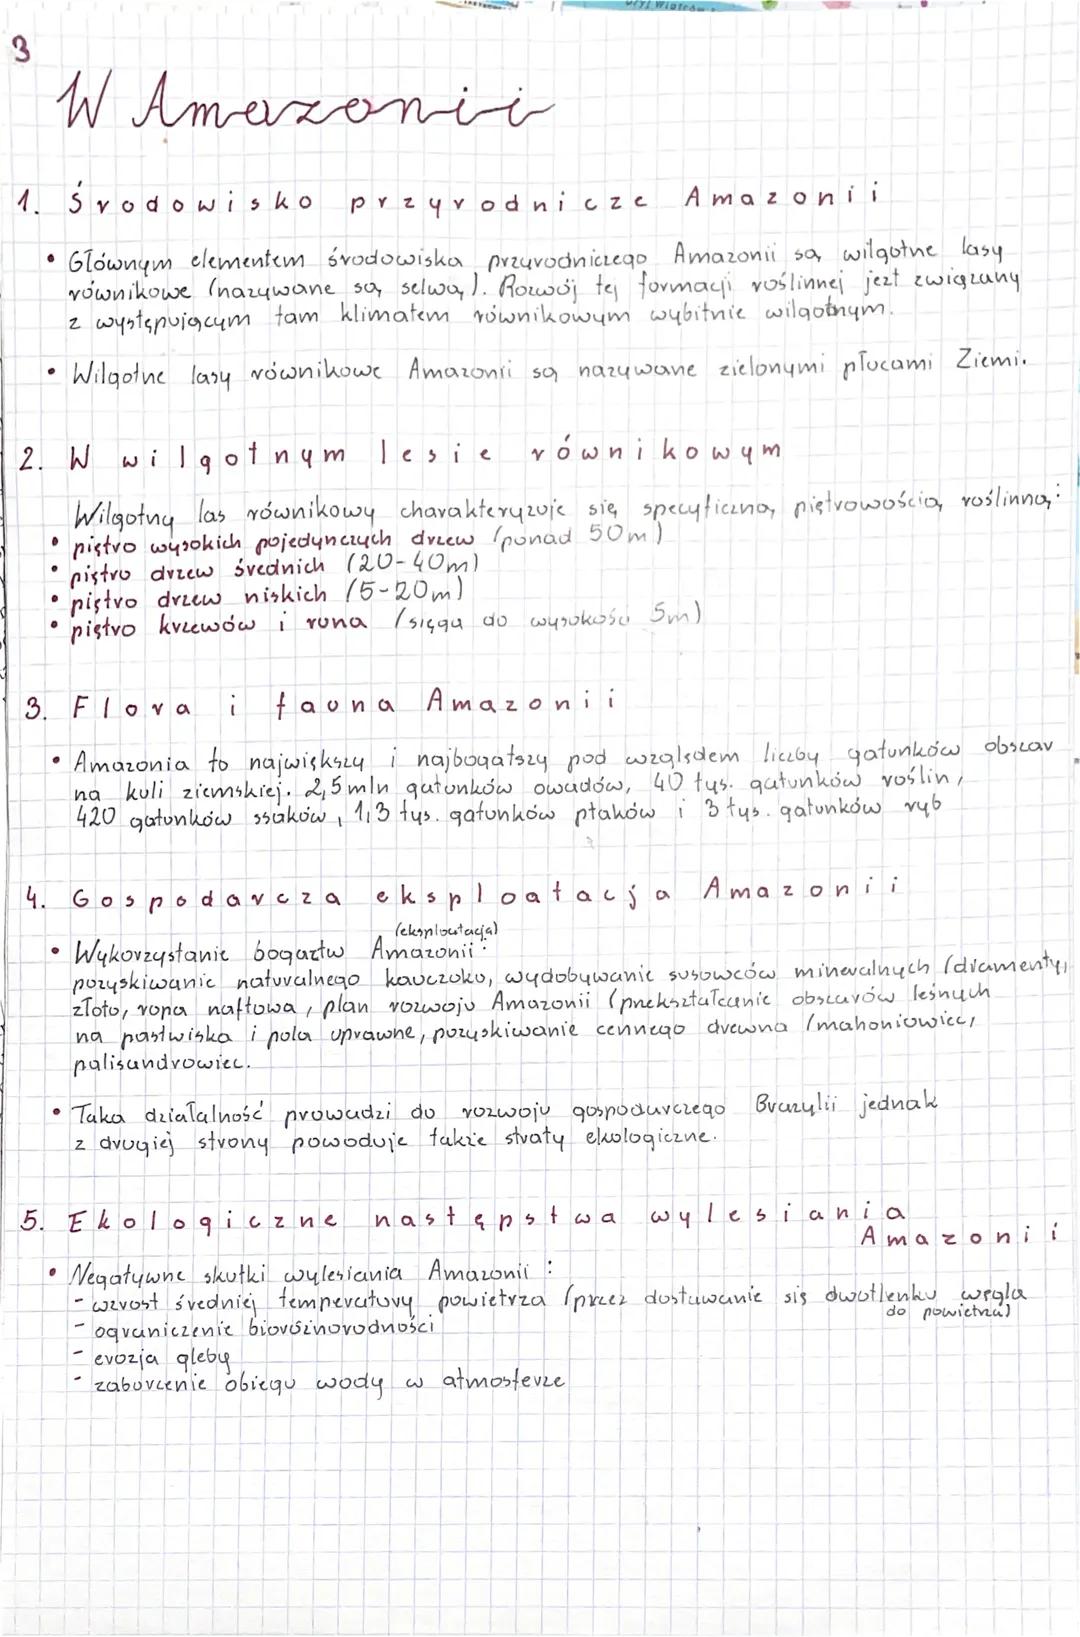 3
W Amazonii
1. Środowisko przyrodnicze Amazonii
• Głównym elementem środowiska przyrodniczego Amazonii są wilgotne lasy
równikowe (nazywane są selwą). Rozwój tej formacji roślinnej jest związany
z występującym tam klimatem równikowym wybitnie wilgotnym.
• Wilgotne lasy równikowe Amazonii są nazywane zielonymi płucami Ziemi.
2. W wilgotnym lesie równikowym
Wilgotny las równikowy charakteryzuje się specyficzną piętrowością roślinną:
• piętro wysokich pojedynczych drzew (ponad 50m)
• piętro drzew średnich (20-40m)
• piętro drzew niskich (5-20m)
• piętro krzewów i runa (sięga do wysokości 5m)
3. Flora i fauna Amazonii
• Amazonia to największy i najbogatszy pod względem liczby gatunków obszar
na kuli ziemskiej. 2,5 mln gatunków owadów, 40 tys. gatunków roślin,
420 gatunków ssaków, 1,3 tys. gatunków ptaków i 3 tys. gatunków ryb
4. Gospodarcza eksploatacja Amazonii
(eksploatacja)
• Wykorzystanie bogactw Amazonii:
pozyskiwanie naturalnego kauczuku, wydobywanie surowców mineralnych (diamenty,
złoto, ropa naftowa, plan rozwoju Amazonii (przekształcanie obszarów leśnych
na pastwiska i pola uprawne, pozyskiwanie cennego drewna (mahoniowiec,
palisandrowiec.
• Taka działalność prowadzi do rozwoju gospodarczego Brazylii jednak
z drugiej strony powoduje także straty ekologiczne.
5. Ekologiczne następstwa wylesiania
Amazonii
• Negatywne skutki wylesiania Amazonii:
- wzrost średniej temperatury powietrza (przez dostawanie się dwutlenku węgla
do powietrza)
- ograniczenie bioróżnorodności
- erozja gleby
- zaburzenie obiegu wody w atmosferze